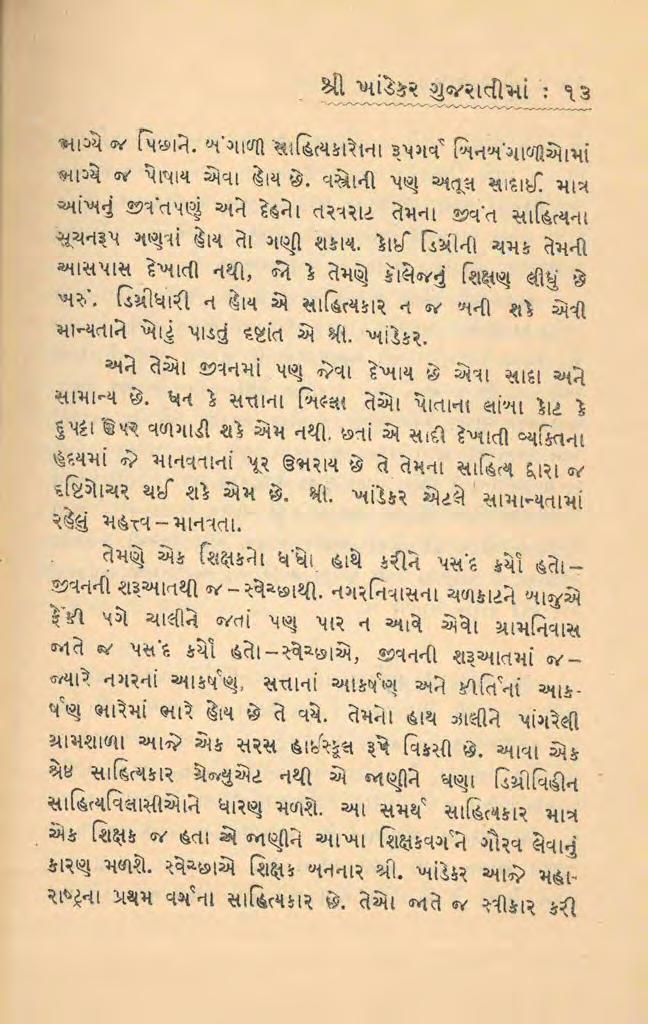 શ્રી ખાંડેકર ગુજરાતીમાં : ૧૩
ભાગ્યે જ પિછાને. બંગાળી સાહિત્યકારોના રૂપગર્વ બિનબંગાળીઓમાં
ભાગ્યે જ પોષાય એવા હોય છે. વસ્ત્રોની પણ અતૂલ સાદાઈ. માત્ર
આંખનું જીવંતપણું અને દેહનો તરવરાટ તેમના જીવંત સાહિત્યના
સૂચનરૂપ ગણુવાં હોય તો ગણી શકાય. કોઈ ડિગ્રીની ચમક તેમની
આસપાસ દેખાતી નથી, જો કે તેમણે કૉલેજનું શિક્ષણ લીધું છે
ખરું. ડિગ્રીધારી ન હોય એ સાહિત્યકાર ન જ બની શકે એવી
માન્યતાને ખોટું પાડતું દૃષ્ટાંત એ શ્રી. ખાંડેકર.
અને તેઓ જીવનમાં પણ જેવા દેખાય છે એવા સાદા અને
સામાન્ય છે. ધન કે સત્તાના બિલ્લા તેઓ પોતાના લાંબા કોટ કે
દુપટ્ટા ઉપર વળગાડી શકે એમ નથી. છતાં એ સાદી દેખાતી વ્યક્તિના
હૃદયમાં જે માનવતાનાં પૂર ઉભરાય છે તે તેમના સાહિત્ય દ્વારા જ
દૃષ્ટિગોચર થઈ શકે એમ છે. શ્રી. ખાંડેકર એટલે સામાન્યતામાં
રહેલું મહત્ત્વ – માનવતા.
તેમણે એક શિક્ષકનો ધંધો હાથે કરીને પસંદ કર્યો હતો–
જીવનની શરૂઆતથી જ – સ્વેચ્છાથી. નગરનિવાસના ચળકાટને બાજુએ
ફેંકી પગે ચાલીને જતાં પણ પાર ન આવે એવો ગ્રામનિવાસ
જાતે જ પસંદ કર્યો હતો–સ્વેચ્છાએ, જીવનની શરૂઆતમાં જ–
જ્યારે નગરનાં આકર્ષણ, સત્તાનાં આકર્ષણ અને કીર્તિનાં આક-
ર્ષણ ભારેમાં ભારે હોય છે તે વયે. તેમનો હાથ ઝાલીને પાંગરેલી
ગ્રામશાળા આજે એક સરસ હાઈસ્કૂલ રૂપે વિકસી છે. આવા એક
શ્રેષ્ઠ સાહિત્યકાર ગ્રેજ્યુએટ નથી એ જાણીને ઘણા ડિગ્રીવિહીન
સાહિત્યવિલાસીઓને ધારણ મળશે. આ સમર્થ સાહિત્યકાર માત્ર
એક શિક્ષક જ હતા એ જાણીને આખા શિક્ષકવર્ગને ગૌરવ લેવાનું
કારણ મળશે. સ્વેચ્છાએ શિક્ષક બનનાર શ્રી. ખાંડેકર આજે મહા-
રાષ્ટ્રના પ્રથમ વર્ગના સાહિત્યકાર છે. તેઓ જાતે જ સ્વીકાર કરી